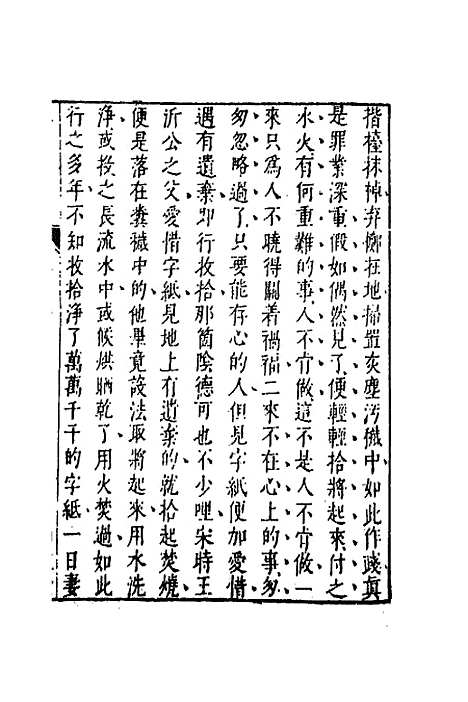 揩檯抹棹弃擲在地掃置灰塵汚穢中如此作踐真
是罪業深重假如偶然見了便輕輕拾將起來付之
水火有何重難的事人不肯做這不是人不肯做一
來只爲人不曉得關着禍福二來不在心上的事匆
匆忽略過了只要能存心的人但見字紙便加愛惜
遇有遺棄即行收拾那箇陰德可也不少哩宋時王
沂公之父愛惜字紙見地上有遺棄的就拾起焚燒
便是落在糞穢中的他畢竟設法取將起來用水洗
淨或投之長流水中或候烘晒乾了用火焚過如此
行之多年不知收拾淨了萬萬千千的字紙一日妻